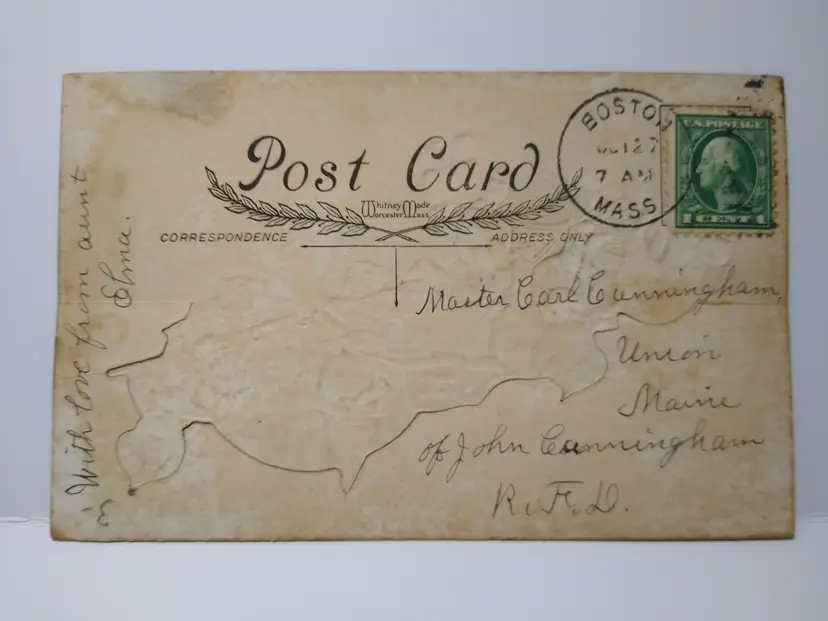 Post Card
Whitney Made
Worcester Mass.
CORRESPONDENCE
ADDRESS ONLY
BOSTON
OCT 27
7 AM
MASS
U.S. POSTAGE
1 CENT 1
Master Carl Cunningham,
Union
Maine
of John Cunningham
R.F.D.
With love from aunt
Elma.